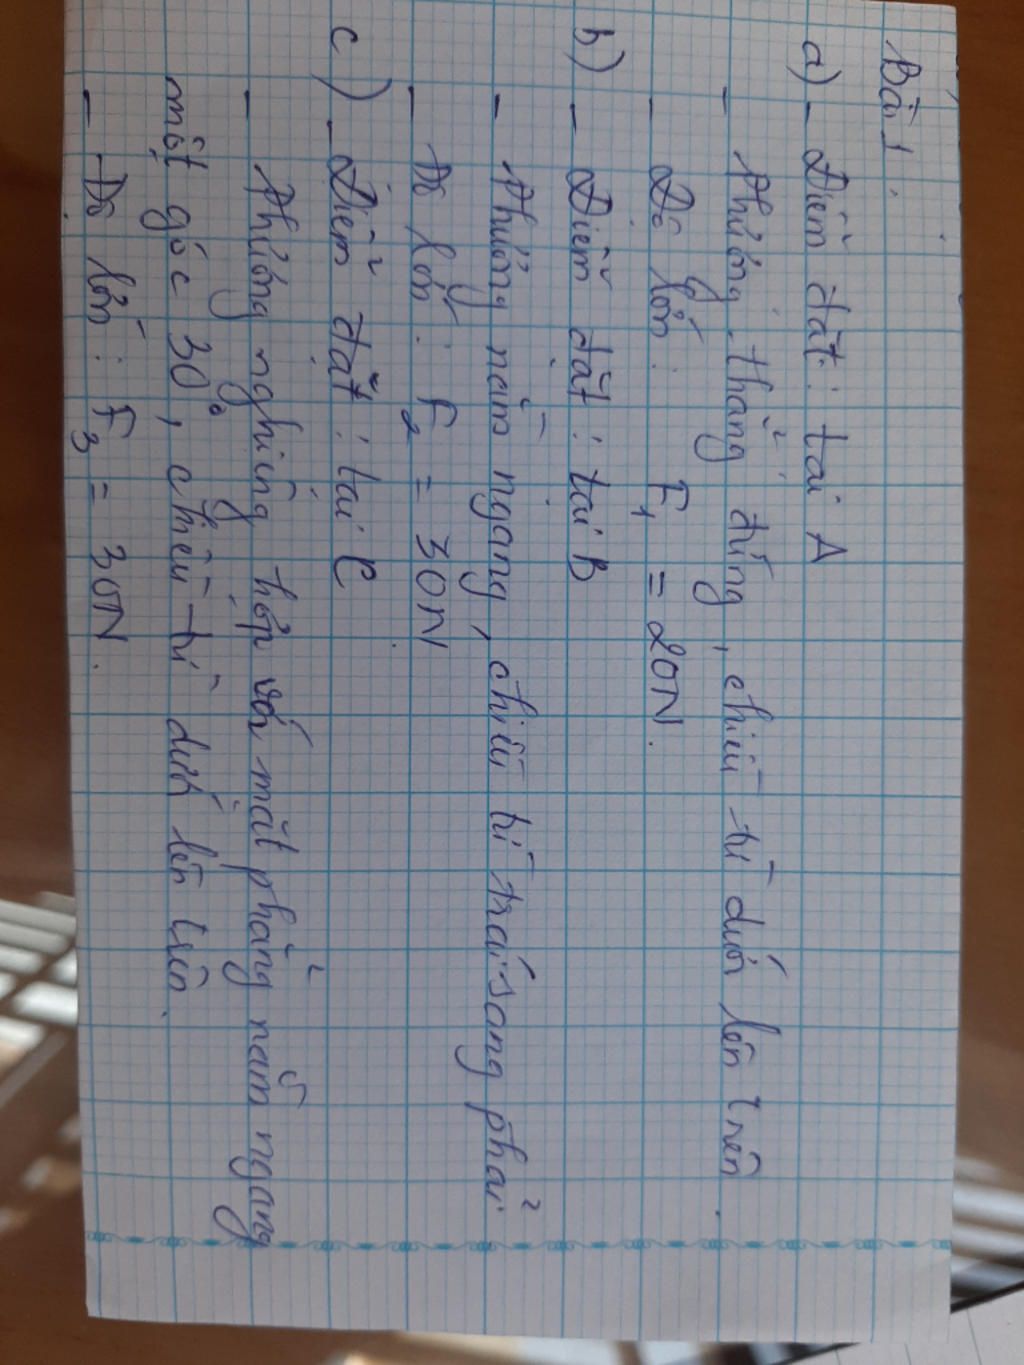 Bài 1:
a) - Điểm đặt: tại A
- Phương thẳng đứng, chiều từ dưới lên trên.
- Độ lớn: F1 = 20N.
b) - Điểm đặt: tại B
- Phương nằm ngang, chiều từ trái sang phải.
- Độ lớn: F2 = 30N
c) - Điểm đặt: tại C
- Phương nghiêng hợp với mặt phẳng nằm ngang
một góc 30°, chiều từ dưới lên trên.
- Độ lớn: F3 = 30N.